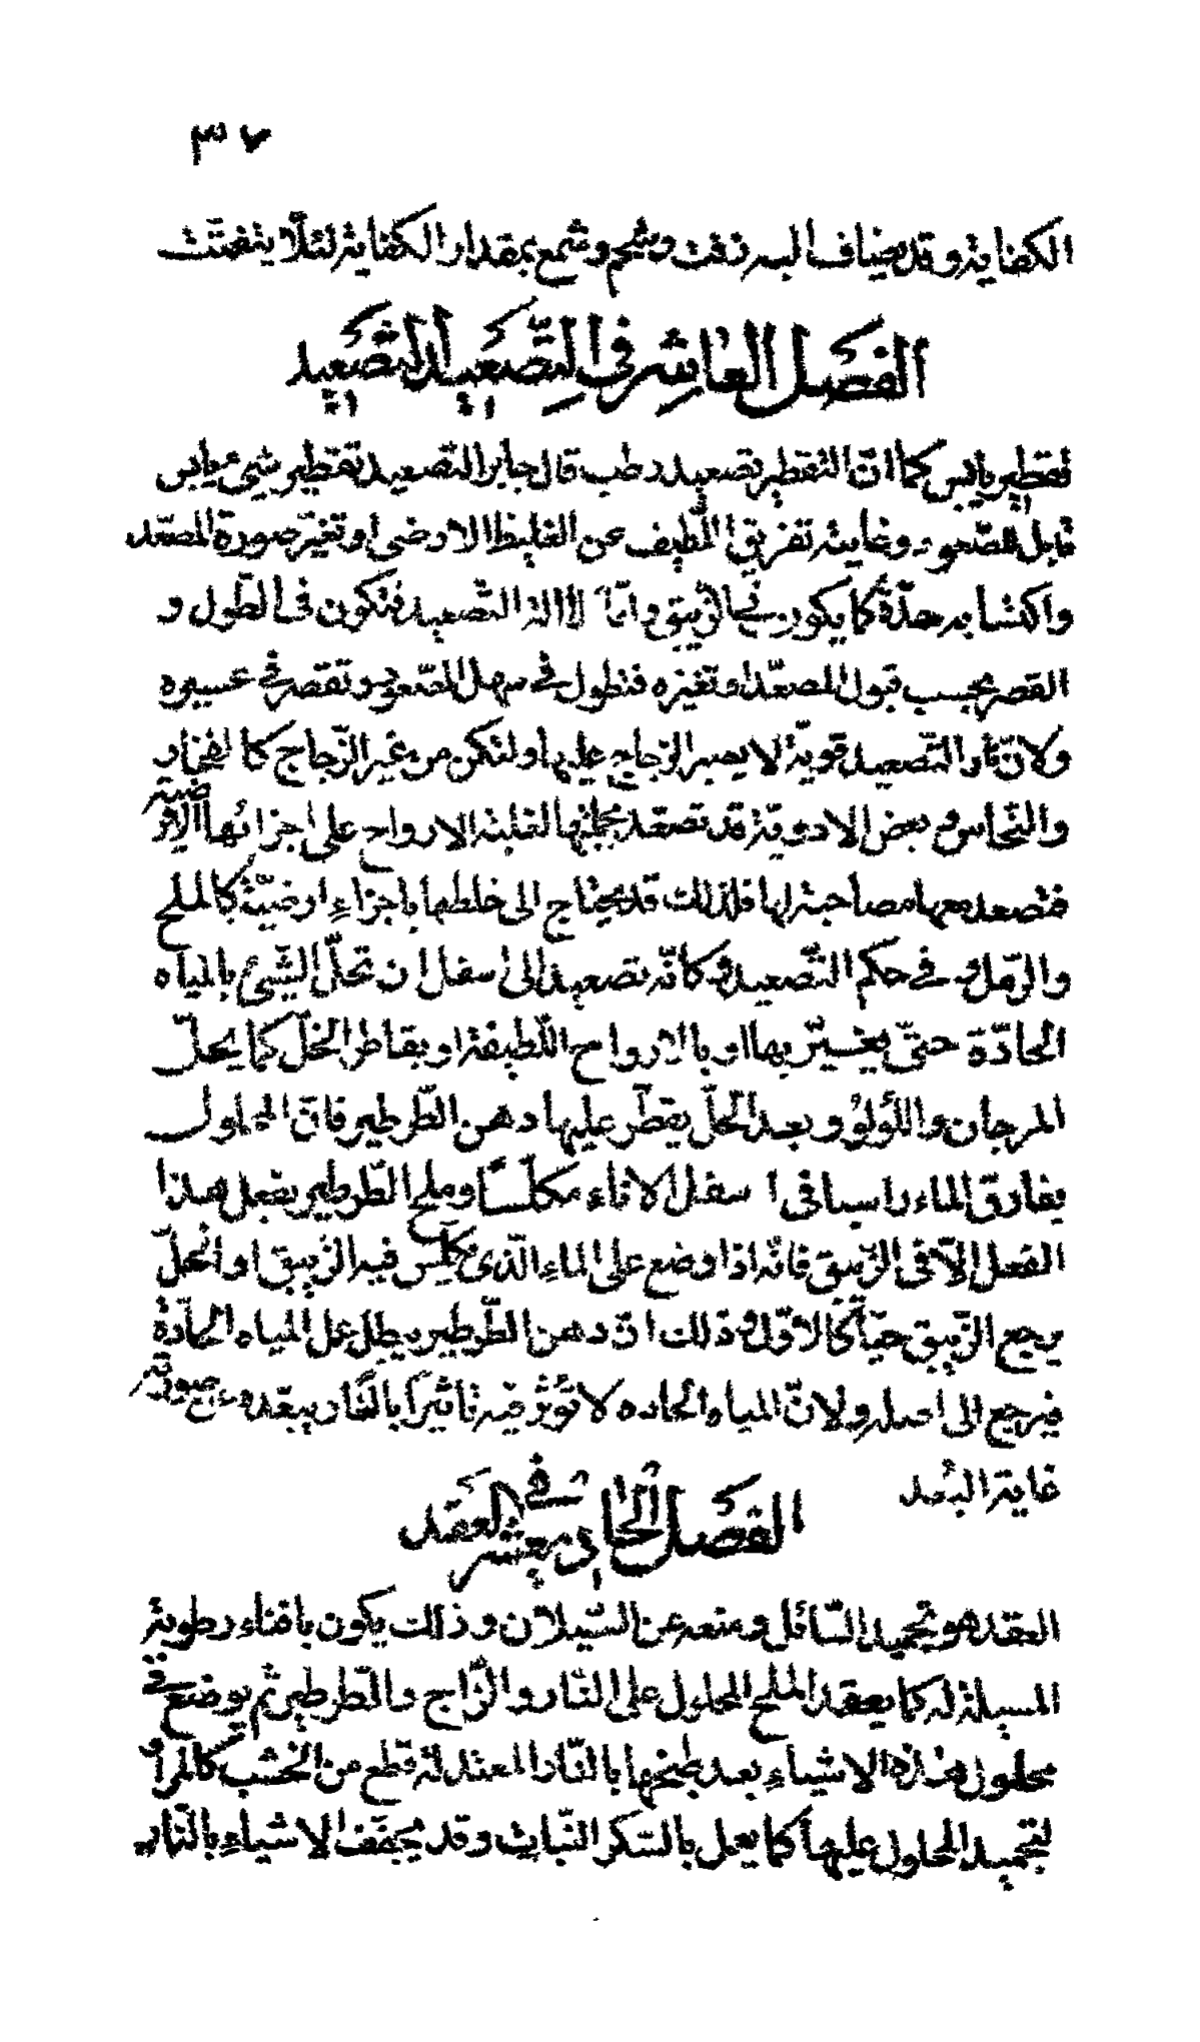 ٣٧
الكفاية وقد يضاف اليه زفت وشحم وشمع بمقدار الكفاية لئلا يتفتت
الفصل العاشر في التصعيد التصعيد
تقطير يابس كما انّ التقطير تصعيد رطب قال جابر التصعيد تقطير شيئ يابس
قابل للصّعود وغايته تفريق اللّطيف عن الغليظ الارضى او تغيّر صورة المصعّد
واكتسابه حدّة كما يكون في الزّيبق وامّا الالة التّصعيد فتكون في الطّول و
القصر بحسب قبول المصعّد او تغيره فتطول في سهل الصّعود وتقصر في عسيره
ولانّ نار التّصعيد قويّة لا يصبر الزجاج عليها ولتكن من غير الزّجاج كالفخار
والنّحاس وبعض الادوية قد تصعّد بجملتها لغلبة الارواح على اجزائها الارضية
فتصعد معها مصاحبة لها فلذلك قد يحتاج الى خلطها باجزاء ارضيّة كالملح
والرّمل و في حكم التّصعيد وكانّه تصعيد الى اسفل ان تحلّ الشّيئ بالمياه
الحادّة حتّى بها او بالارواح اللّطيفة او بقاطر الخلّ كما يحلّ
المرجان واللّؤلؤ وبعد الحلّ يقطّر عليها دهن الطّرطير فانّ المحلول
يفارق الماء راسبا في اسفل الاناء مكلّسًا وملح الطّرطير يفعل هذا
الفعل الّا في الزّيبق فانّه اذا وضع على الماء الّذي كلّس فيه الزّيبق او انحلّ
يرجع الزّيبق حيّا كالاوّل وذلك انّ دهن الطّرطير يبطل عمل المياه الحادّة
فيرجع الى اصله ولانّ المياه الحاده لا تؤثّر فيه تاثيرًا بالنّار يبعّده عن صورته
غاية البُعد
الفصل الحادي عشر في العقد
العقد هو تجميد السّائل ومنعه عن السّيلان وذلك يكون بافناء رطوبته
المسيلة له كما يعقد الملح المحلول على النّار والزّاج والطّرطير ثم يوضع في
محلول هذه الاشياء بعد طبخها بالنّار المعتدلة قطع من الخشب
لتجميد المحلول عليها كما يعمل بالسّكر النّبات وقد يجفّف الاشياء بالنّار